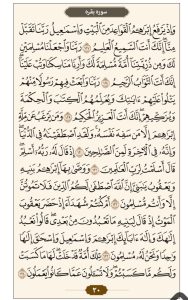 سوره بقره
وَإِذْ يَرْفَعُ إِبْرَٰهِـۧمُ ٱلْقَوَاعِدَ مِنَ ٱلْبَيْتِ وَإِسْمَٰعِيلُ رَبَّنَا تَقَبَّلْ
مِنَّآ إِنَّكَ أَنتَ ٱلسَّمِيعُ ٱلْعَلِيمُ ١٢٧ رَبَّنَا وَٱجْعَلْنَا مُسْلِمَيْنِ
لَكَ وَمِن ذُرِّيَّتِنَآ أُمَّةً مُّسْلِمَةً لَّكَ وَأَرِنَا مَنَاسِكَنَا وَتُبْ عَلَيْنَآ
إِنَّكَ أَنتَ ٱلتَّوَّابُ ٱلرَّحِيمُ ١٢٨ رَبَّنَا وَٱبْعَثْ فِيهِمْ رَسُولًا مِّنْهُمْ
يَتْلُوا۟ عَلَيْهِمْ ءَايَٰتِكَ وَيُعَلِّمُهُمُ ٱلْكِتَٰبَ وَٱلْحِكْمَةَ
وَيُزَكِّيهِمْ إِنَّكَ أَنتَ ٱلْعَزِيزُ ٱلْحَكِيمُ ١٢٩ وَمَن يَرْغَبُ عَن مِّلَّةِ
إِبْرَٰهِـۧمَ إِلَّا مَن سَفِهَ نَفْسَهُۥ وَلَقَدِ ٱصْطَفَيْنَٰهُ فِى ٱلدُّنْيَا
وَإِنَّهُۥ فِى ٱلْـَٔاخِرَةِ لَمِنَ ٱلصَّٰلِحِينَ ١٣٠ إِذْ قَالَ لَهُۥ رَبُّهُۥٓ أَسْلِمْ
قَالَ أَسْلَمْتُ لِرَبِّ ٱلْعَٰلَمِينَ ١٣١ وَوَصَّىٰ بِهَآ إِبْرَٰهِـۧمُ بَنِيهِ
وَيَعْقُوبُ يَٰبَنِىَّ إِنَّ ٱللَّهَ ٱصْطَفَىٰ لَكُمُ ٱلدِّينَ فَلَا تَمُوتُنَّ
إِلَّا وَأَنتُم مُّسْلِمُونَ ١٣٢ أَمْ كُنتُمْ شُهَدَآءَ إِذْ حَضَرَ يَعْقُوبَ
ٱلْمَوْتُ إِذْ قَالَ لِبَنِيهِ مَا تَعْبُدُونَ مِنۢ بَعْدِى قَالُوا۟ نَعْبُدُ
إِلَٰهَكَ وَإِلَٰهَ ءَابَآئِكَ إِبْرَٰهِـۧمَ وَإِسْمَٰعِيلَ وَإِسْحَٰقَ إِلَٰهًا
وَٰحِدًا وَنَحْنُ لَهُۥ مُسْلِمُونَ ١٣٣ تِلْكَ أُمَّةٌ قَدْ خَلَتْ لَهَا مَا كَسَبَتْ
وَلَكُم مَّا كَسَبْتُمْ وَلَا تُسْـَٔلُونَ عَمَّا كَانُوا۟ يَعْمَلُونَ ١٣٤
٢٠